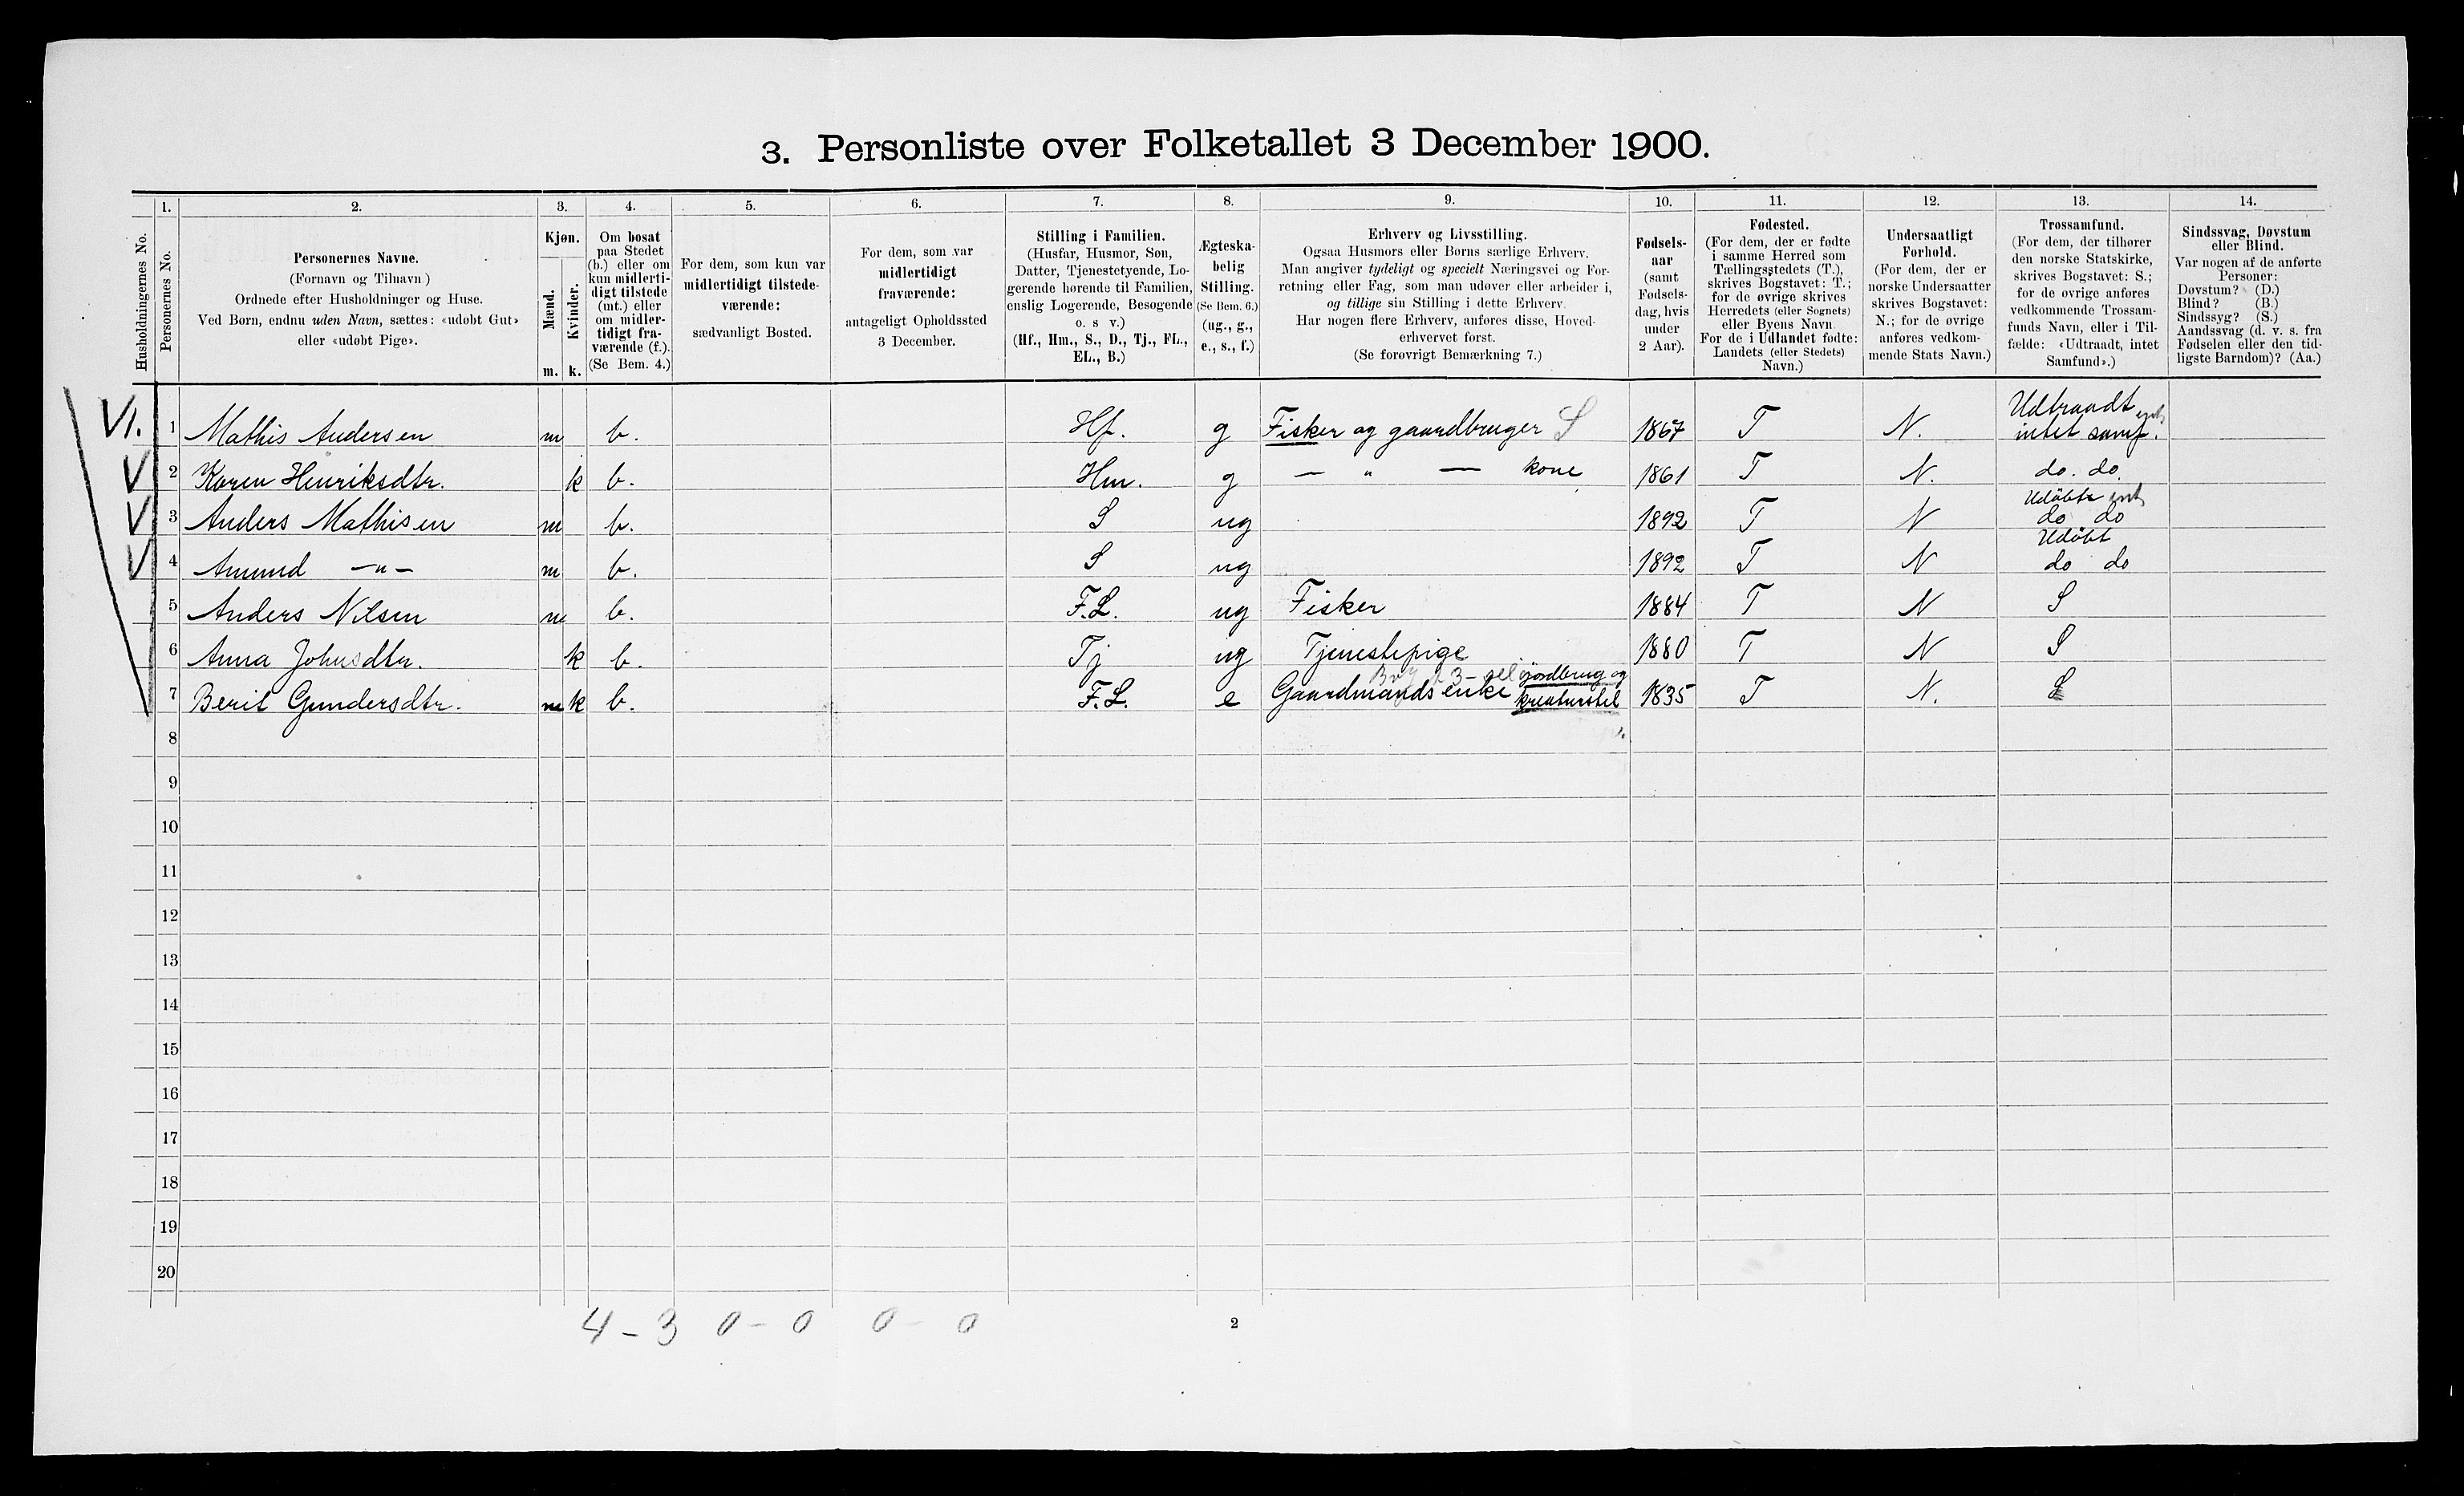 3. Personliste over Folketallet 3 December 1900.
Husholdningernes No.
1.
Personernes No.
2.
Personernes Navne.
(Fornavn og Tilnavn)
Ordnede efter Husholdninger og Huse.
Ved Børn, endnu uden Navn, sættes: «udøbt Gut»
eller «udøbt Pige».
3.
Kjøn.
Mænd.
m.
Kvinder.
k.
4.
Om bosat
paa Stedet
(b.) eller om
kun midlerti-
digt tilstede
(mt.) eller
om midler-
tidigt fra-
værende (f.).
(Se Bem. 4.)
5.
For dem, som kun var
midlertidigt tilstede-
værende:
sædvanligt Bosted.
6.
For dem, som var
midlertidigt
fraværende:
antageligt Opholdssted
3 December.
7.
Stilling i Familien.
(Husfar, Husmor, Søn,
Datter, Tjenestetyende, Lo-
gerende hørende til Familien,
enslig Logerende, Besøgende
o. s v.)
(Hf., Hm., S., D., Tj., FL.,
EL., B.)
8.
Ægteska-
belig
Stilling.
(Se Bem. 6.)
(ug., g.,
e., s., f.)
9.
Erhverv og Livsstilling.
Ogsaa Husmors eller Børns særlige Erhverv.
Man angiver tydeligt og specielt Næringsvei og For-
retning eller Fag, som man udøver eller arbeider i,
og tillige sin Stilling i dette Erhverv.
Har nogen flere Erhverv, anføres disse, Hoved-
erhvervet først.
(Se forøvrigt Bemærkning 7.)
10.
Fødsels-
aar
(samt
Fødsels-
dag, hvis
under
2 Aar).
11.
Fødested.
(For dem, der er fødte
i samme Herred som
Tællingsstedets (T.),
skrives Bogstavet: T.;
for de øvrige skrives
Herredets (eller Sognets)
eller Byens Navn.
For de i Udlandet fødte:
Landets (eller Stedets)
Navn.)
12.
Undersaatligt
Forhold.
(For dem, der er
norske Undersaatter
skrives Bogstavet:
N.; for de øvrige
anføres vedkom-
mende Stats Navn.)
13.
Trossamfund.
(For dem, der tilhører
den norske Statskirke,
skrives Bogstavet: S.;
for de øvrige anføres
vedkommende Trossam-
funds Navn, eller i Til-
fælde: «Udtraadt, intet
Samfund».)
14.
Sindssvag, Døvstum
eller Blind.
Var nogen af de anførte
Personer:
Døvstum? (D.)
Blind? (B.)
Sindssyg? (S.)
Aandssvag (d. v. s. fra
Fødselen eller den tid-
ligste Barndom)? (Aa.)
VI. 1 Mathis Andersen m b. Hf. g Fisker og gaardbruger S 1867 T N. Udtraadt intet samf.
V 2 Karen Henriksdtr. k b. Hm. g — " — kone 1861 T N. do. do.
V 3 Anders Mathisen m b. S ug 1892 T N Udöbt do do
V 4 Amund —"— m b. S ug 1892 T N Udöbt do do
5 Anders Nilsen m b. F.L. ug Fisker 1884 T N S
6 Anna Johnsdtr. k b. Tj ug Tjenestepige 1880 T N S
7 Berit Gundersdtr. m k b. F.L. e Gaardmands enke jordbrug og kreaturstel 1835 T N. S
8
9
10
11
12
13
14
15
16
17
18
19
20
4 - 3 0 - 0 0 - 0
2